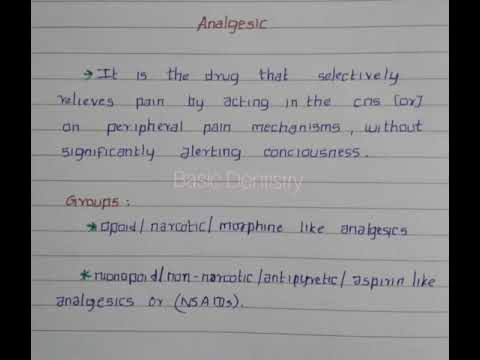 Analgesic
→ It is the drug that selectively
relieves pain by acting in the cns [or]
on peripheral pain mechanisms, without
significantly alerting conciousness.
Basic Dentistry
Groups :
* opoid/narcotic/morphine like analgesics
* nonopoid/non-narcotic/antipyretic/aspirin like
analgesics or (NSAIDs).